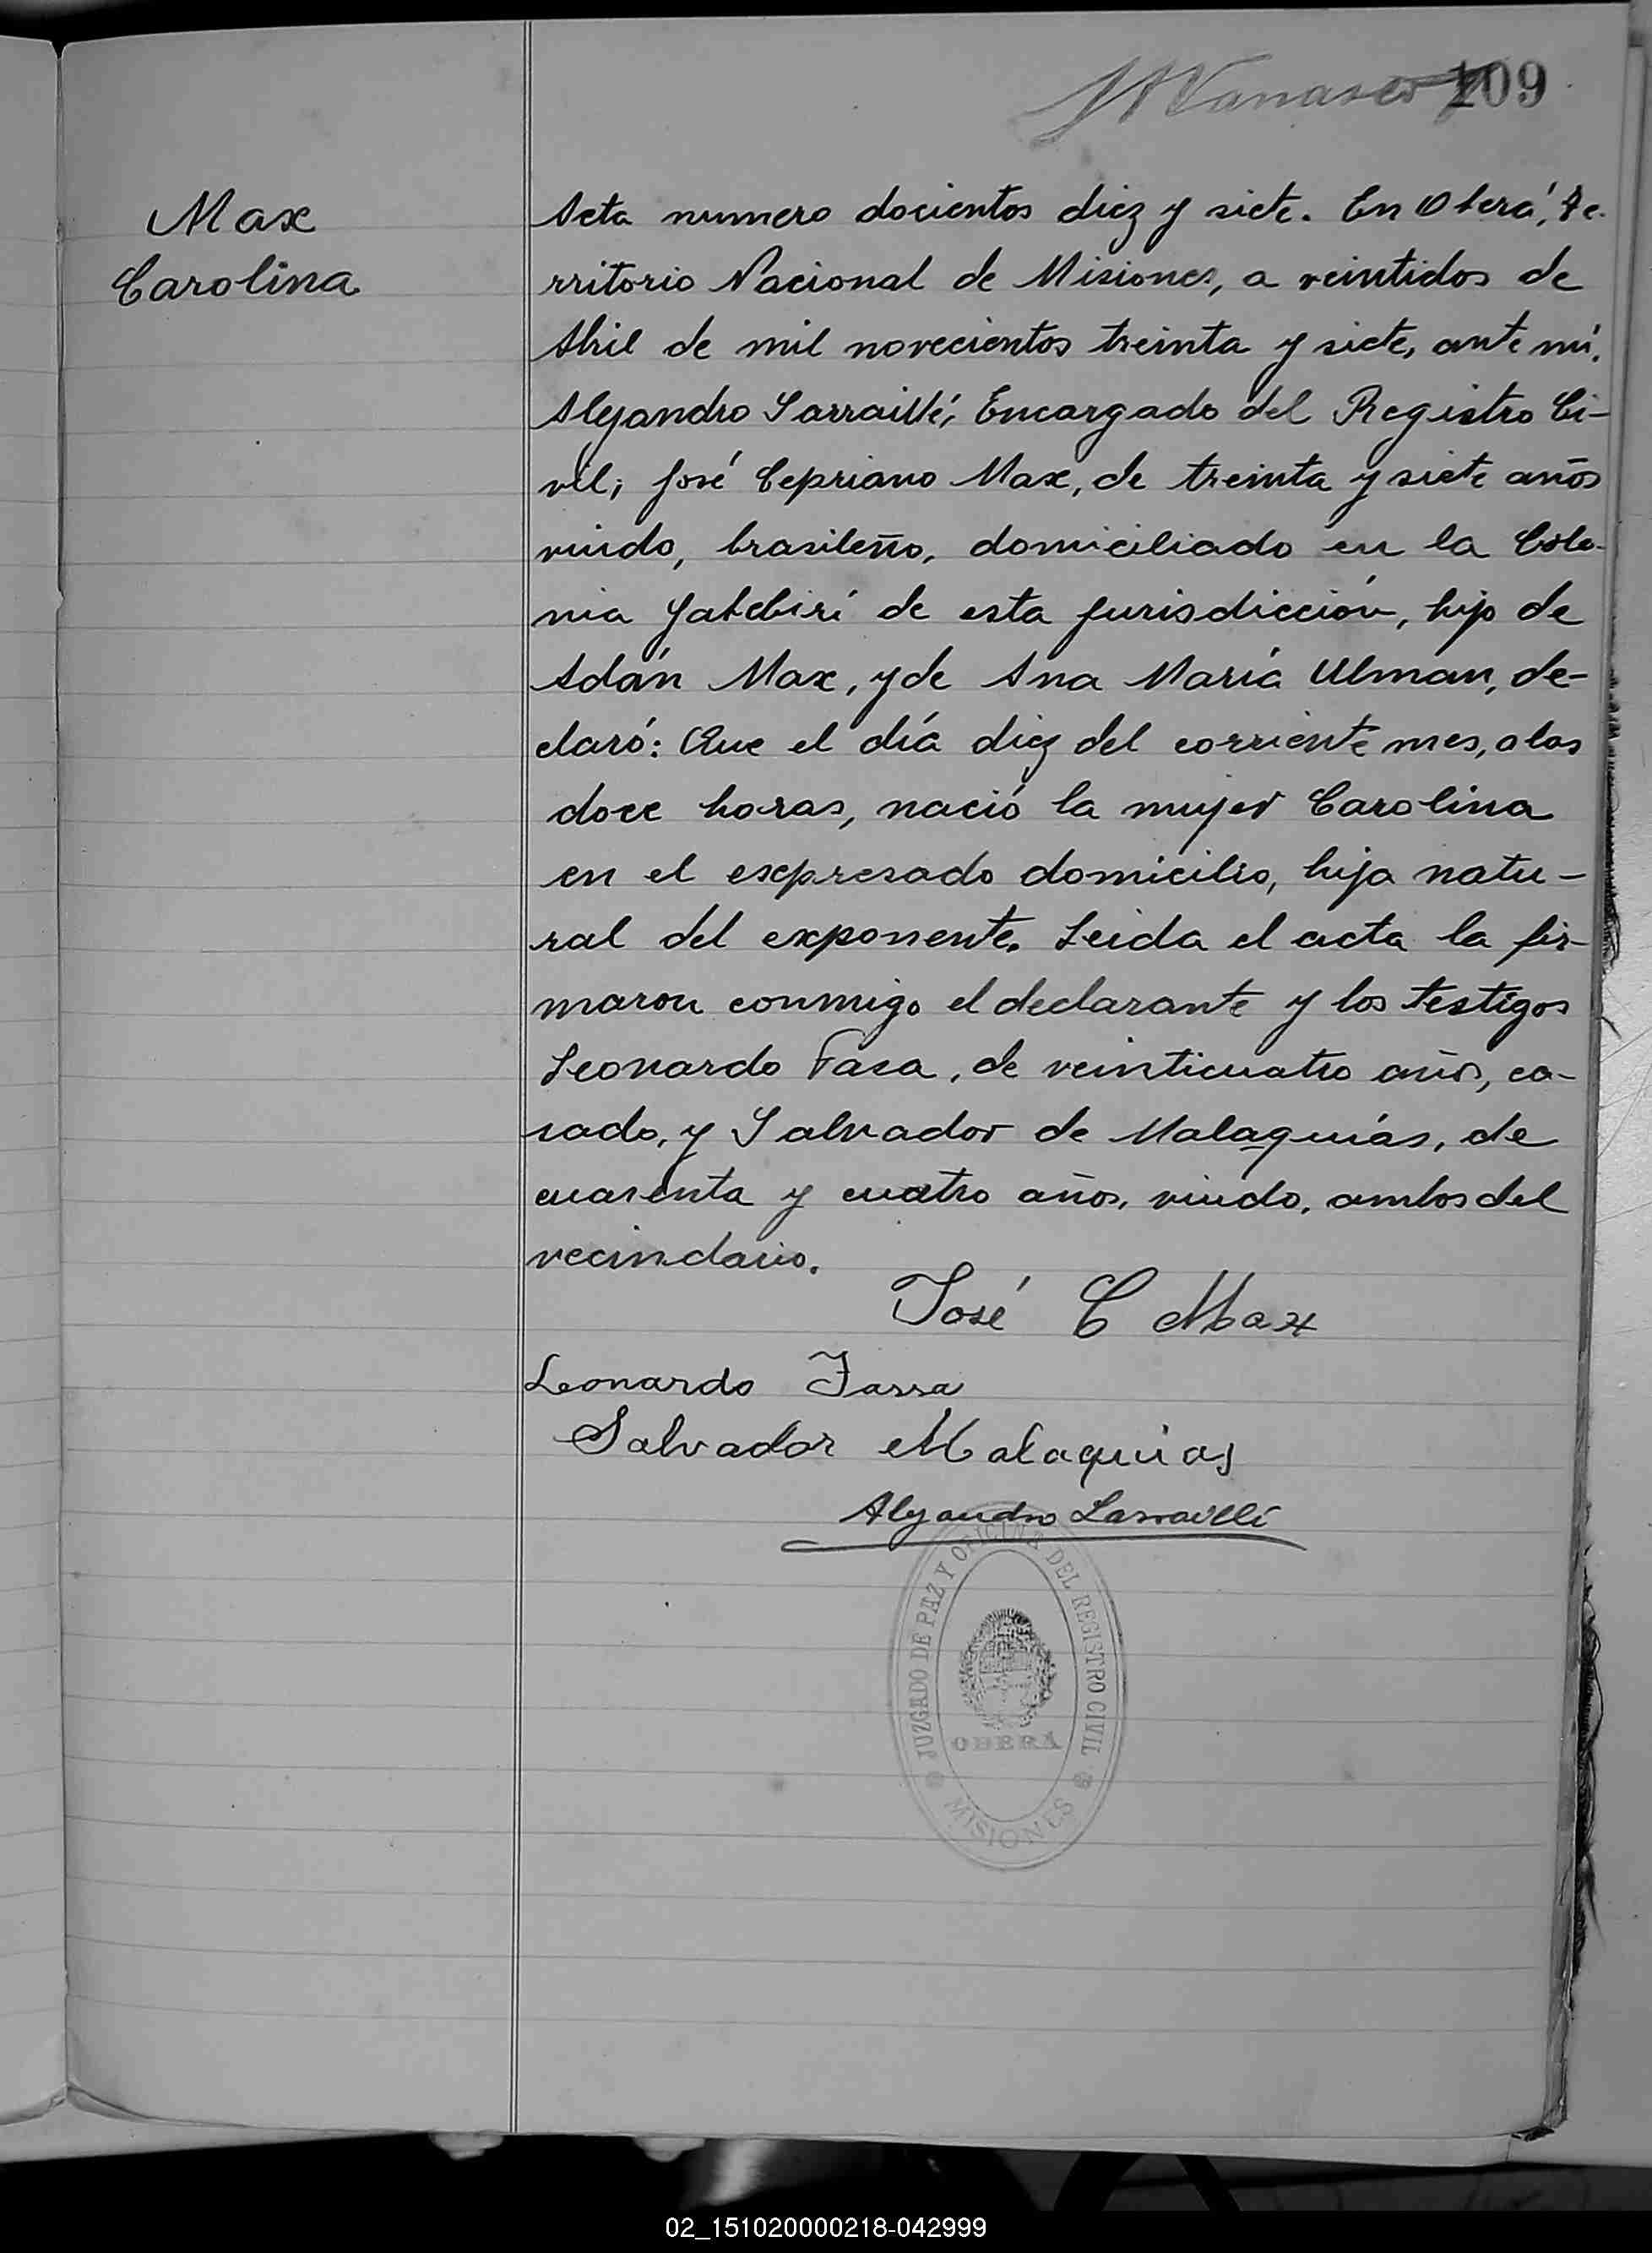 109
Max
Carolina
Acta numero docientos diez y siete. En Oberá, Te-
rritorio Nacional de Misiones, a veintidos de
Abril de mil novecientos treinta y siete, ante mí,
Alejandro Larraillí, Encargado del Registro Ci-
vil; José Cepriano Max, de treinta y siete años
viudo, brasileño, domiciliado en la Colo-
nia Yabebirí de esta jurisdicción, hijo de
Adán Max, y de Ana María Ulman, de-
claró: Que el día diez del corriente mes, a las
doce horas, nació la mujer Carolina
en el expresado domicilio, hija natu-
ral del exponente. Leida el acta la fir-
maron conmigo el declarante y los testigos
Leonardo Fasa, de veinticuatro años, ca-
sado, y Salvador de Malaquías, de
cuarenta y cuatro años, viudo, ambos del
vecindario.
José C Max
Leonardo Fassa
Salvador Malaquias
Alejandro Larraillí
JUZGADO DE PAZ Y OFICINA DEL REGISTRO CIVIL
OBERÁ
MISIONES
02_151020000218-042999